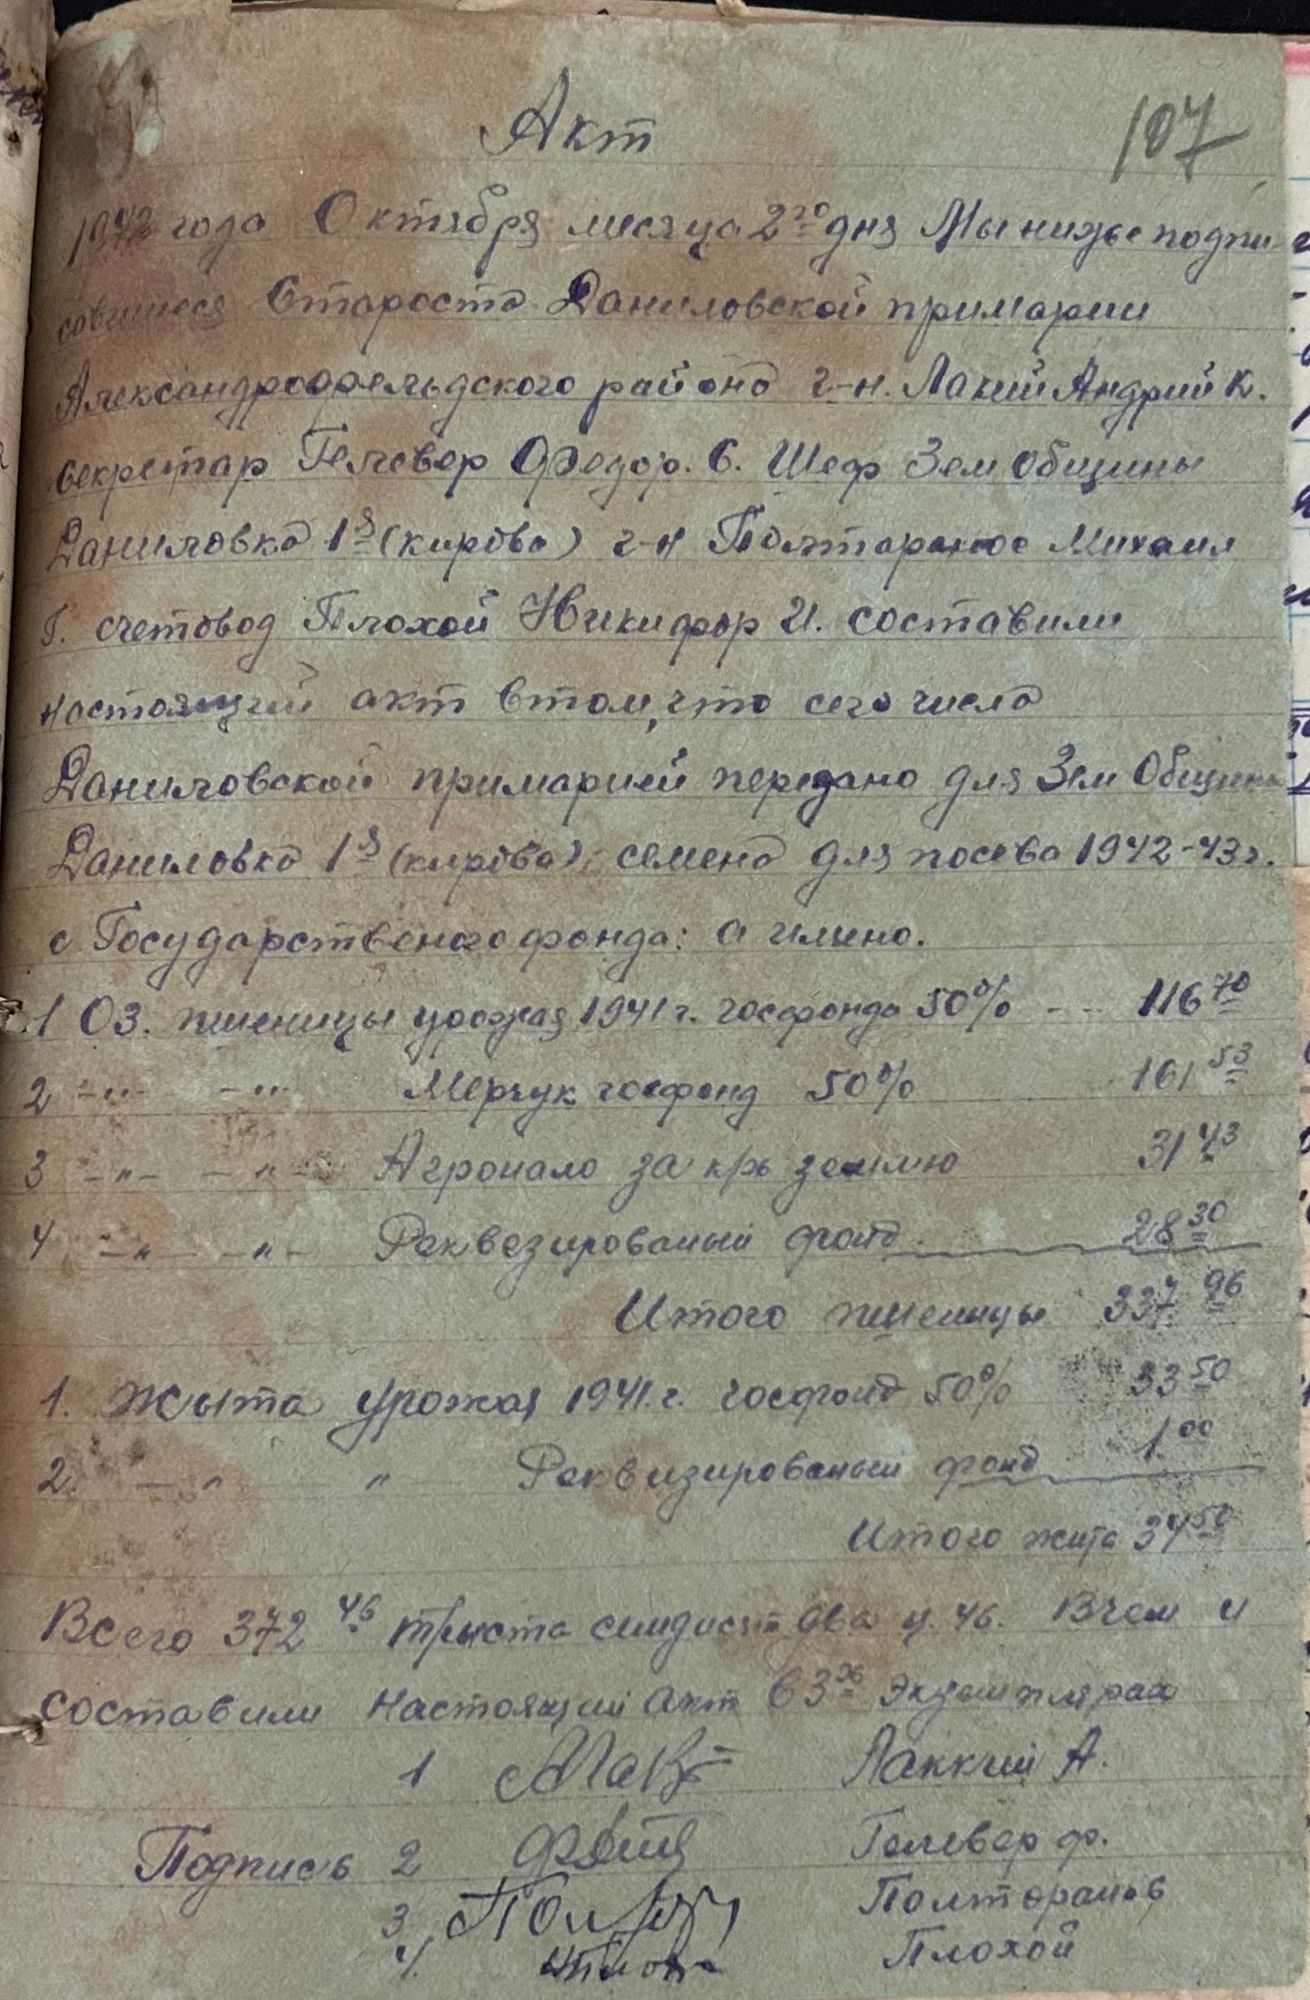 107
Акт
1942 года Октября месяца 2го дня Мы нижеподпи
савшиеся Староста Даниловской примарии
Александрофельдского района г-н. Лакий Андрий К.
секретар Гелевер Федор. С. Шеф Зем Общины
Даниловка 1я (кирова) г-н Полтаранос Михаил
Г. счетовод Плохой Никифор И. составили
настоящий акт втом, что сего числа
Даниловской примарией передано для Зем Общины
Даниловка 1я (кирова) семена для посева 1942-43 г.
с Государственого фонда: а имено.
1 Оз. пшеницы урожая 1941 г. госфонда 50% -- 116 70
2 -"- -"- Мерчук госфонд 50% 161 53
3 -"- -"- за кр. землю 31 43
4 -"- -"- Реквезированый фонд. 28 30
Итого пшеницы 337 96
1. Жыта урожая 1941 г. госфонд 50% 33 50
2. -"- " Реквизированый фонд 1.00
Итого жита 34 50
Всего 372 46 трыста семдисят два ц. 46. Вчем и
составили настоящий акт в 3х экземплярах
1 Лаккий А.
Подпись 2 Гелевер ф.
3. Полтаранос
4. Плохой